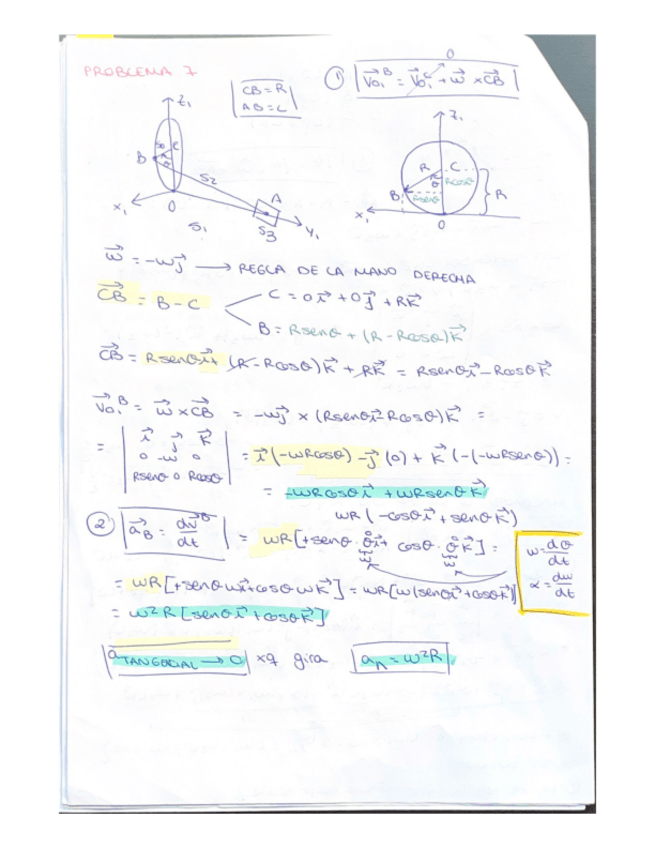 PROBLEMA 7
CB = R
AB = L
① V₀₁ᴮ = V₀₁ᶜ + ω × CB
0
z₁
B
R
C
θ
S₂
A
x₁
O
S₁
S₃
y₁
z₁
R
C
θ
Rcosθ
B
Rsenθ
R
x₁
O
ω = -ωj → REGLA DE LA MANO DERECHA
CB = B - C
C = 0i + 0j + Rk
B = Rsenθ + (R - Rcosθ)k
CB = Rsenθi + (R - Rcosθ)k + Rk = Rsenθi - Rcosθk
V₀₁ᴮ = ω × CB = -ωj × (Rsenθi - Rcosθ)k =
= | i j k
0 -ω 0
Rsenθ 0 Rcosθ | = i(-ωRcosθ) - j(0) + k(-(-ωRsenθ)) =
= -ωRcosθi + ωRsenθk
ωR(-cosθi + senθk)
② a_B = dvᴮ/dt = ωR[+senθ·θ̇i + cosθ·θ̇k] =
ω ω
ω = dθ/dt
α = dω/dt
= ωR[+senθωi + cosθωk] = ωR[ω(senθi + cosθk)]
= ω²R[senθi + cosθk]
a TANGENCIAL → 0 xq gira aₙ = ω²R